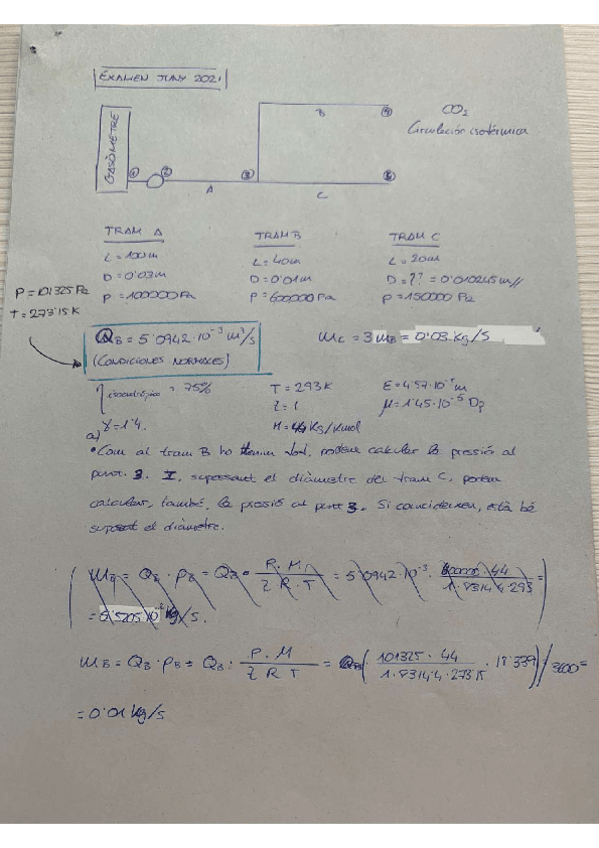 EXAMEN JUNY 2021
GASÒMETRE
1 2 3 4 5
A B C
CO2
Circulación isotérmica
TRAM A
L = 100 m
D = 0'03 m
P = 100000 Pa
TRAM B
L = 40 m
D = 0'01 m
P = 600000 Pa
TRAM C
L = 20 m
D = ?? = 0'010245 m//
P = 150000 Pa
P = 101325 Pa
T = 273'15 K
QB = 5'0942·10⁻³ m³/s
(CONDICIONES NORMALES)
mC = 3 mB = 0'03 kg/s
η isoentrópico = 75%
γ = 1'4.
T = 293 K
z = 1
M = 44 Kg/Kmol
E = 4'57·10⁻⁵ m
μ = 1'45·10⁻⁵
a)
• Com al tram B ho tenim tot, podem calcular la pressió al
punt 3. I, suposant el diàmetre del tram C, podem
calcular, també, la pressió al punt 3. Si coincideixen, està bé
suposat el diàmetre.
mB = QB · ρB = QB · P.M. / Z R.T = 5'0942·10⁻³ · 44 / 1·8314'4·293 =
kg/s.
mB = QB · ρB = QB · P.M / Z R T = ( 101325 · 44 / 1·8314'4·273'15 · 18'339 ) / 3600 =
= 0'01 kg/s